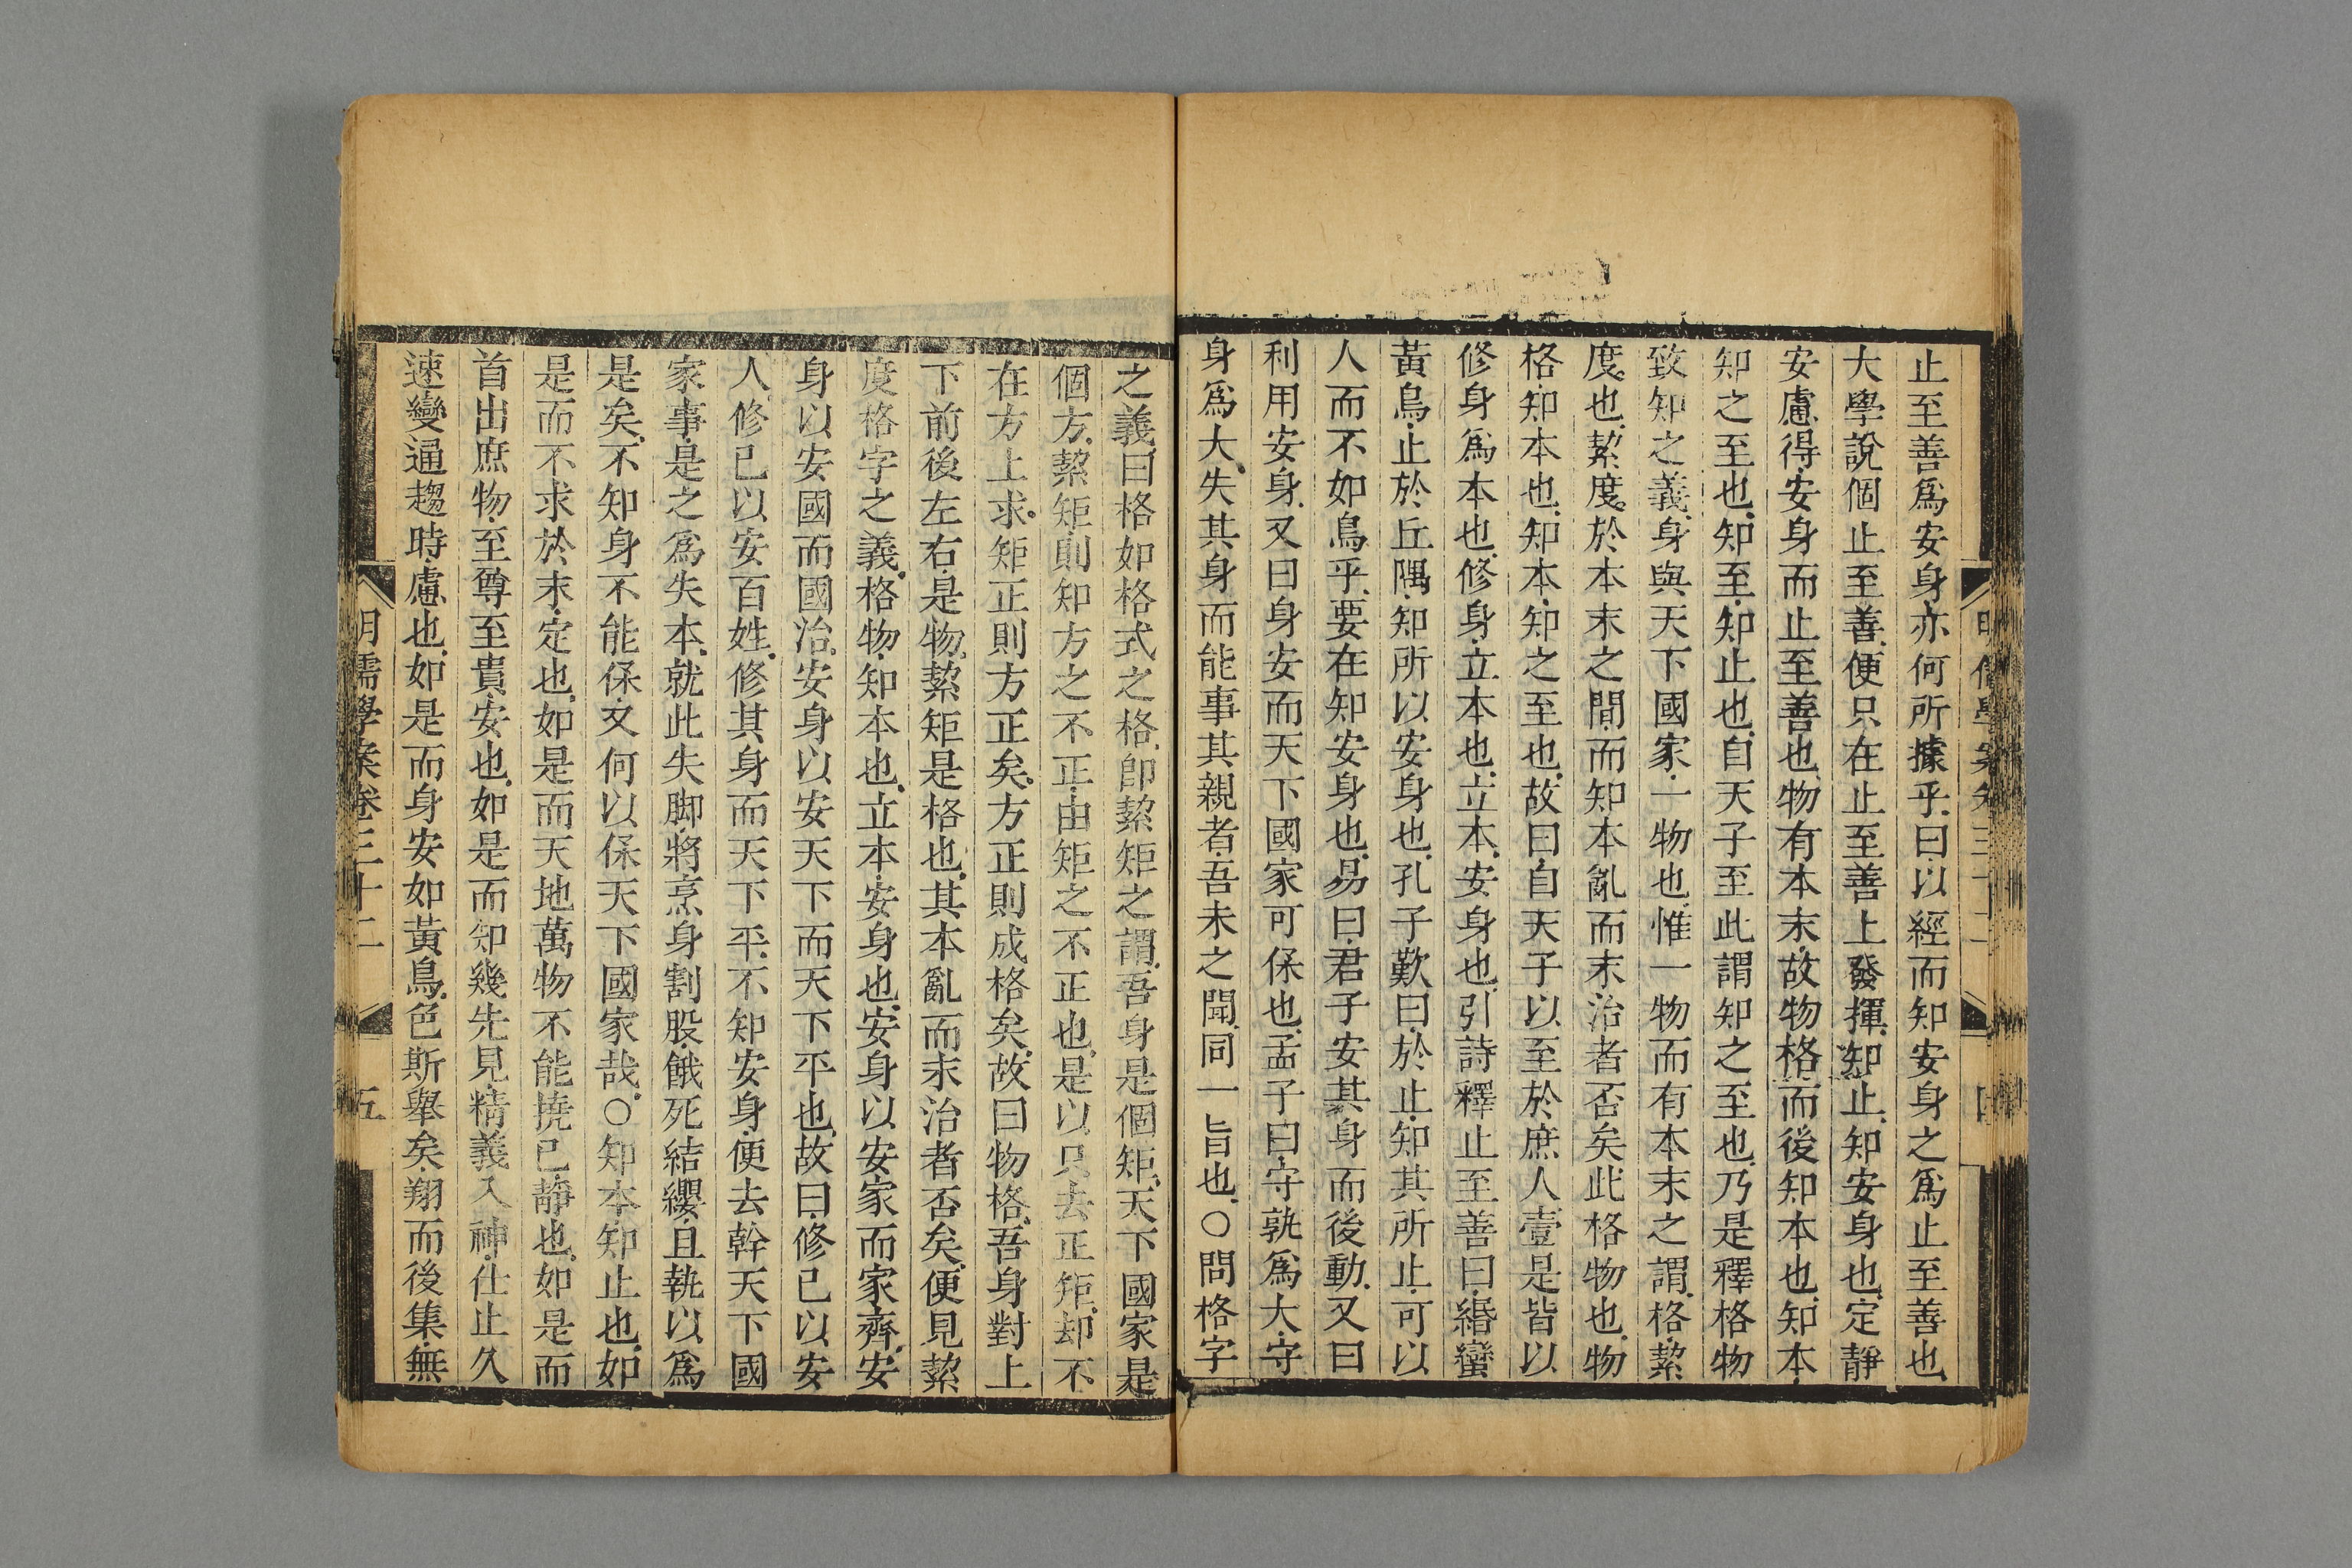 止至善爲安身亦何所據乎曰以經而知安身之爲止至善也
大學說個止至善便只在止至善上發揮知止知安身也定靜
安慮得安身而止至善也物有本末故物格而後知本也知本
知之至也知至知止也自天子至此謂知之至也乃是釋格物
致知之義身與天下國家一物也惟一物而有本末之謂格絜
度也絜度於本末之間而知本亂而末治者否矣此格物也物
格知本也知本知之至也故曰自天子以至於庶人壹是皆以
修身爲本也修身立本也立本安身也引詩釋止至善曰緡蠻
黃鳥止於丘隅知所以安身也孔子歎曰於止知其所止可以
人而不如鳥乎要在知安身也易曰君子安其身而後動又曰
利用安身又曰身安而天下國家可保也孟子曰守孰爲大守
身爲大失其身而能事其親者吾未之聞同一旨也○問格字
之義曰格如格式之格卽絜矩之謂吾身是個矩天下國家是
個方絜矩則知方之不正由矩之不正也是以只去正矩却不
在方上求矩正則方正矣方正則成格矣故曰物格吾身對上
下前後左右是物絜矩是格也其本亂而末治者否矣便見絜
度格字之義格物知本也立本安身也安身以安家而家齊安
身以安國而國治安身以安天下而天下平也故曰修己以安
人修己以安百姓修其身而天下平不知安身便去幹天下國
家事是之爲失本就此失脚將烹身割股餓死結纓且執以爲
是矣不知身不能保又何以保天下國家哉○知本知止也如
是而不求於末定也如是而天地萬物不能撓己靜也如是而
首出庶物至尊至貴安也如是而知幾先見精義入神仕止久
速變通趨時慮也如是而身安如黃鳥色斯舉矣翔而後集無
明儒學案卷三十二
五